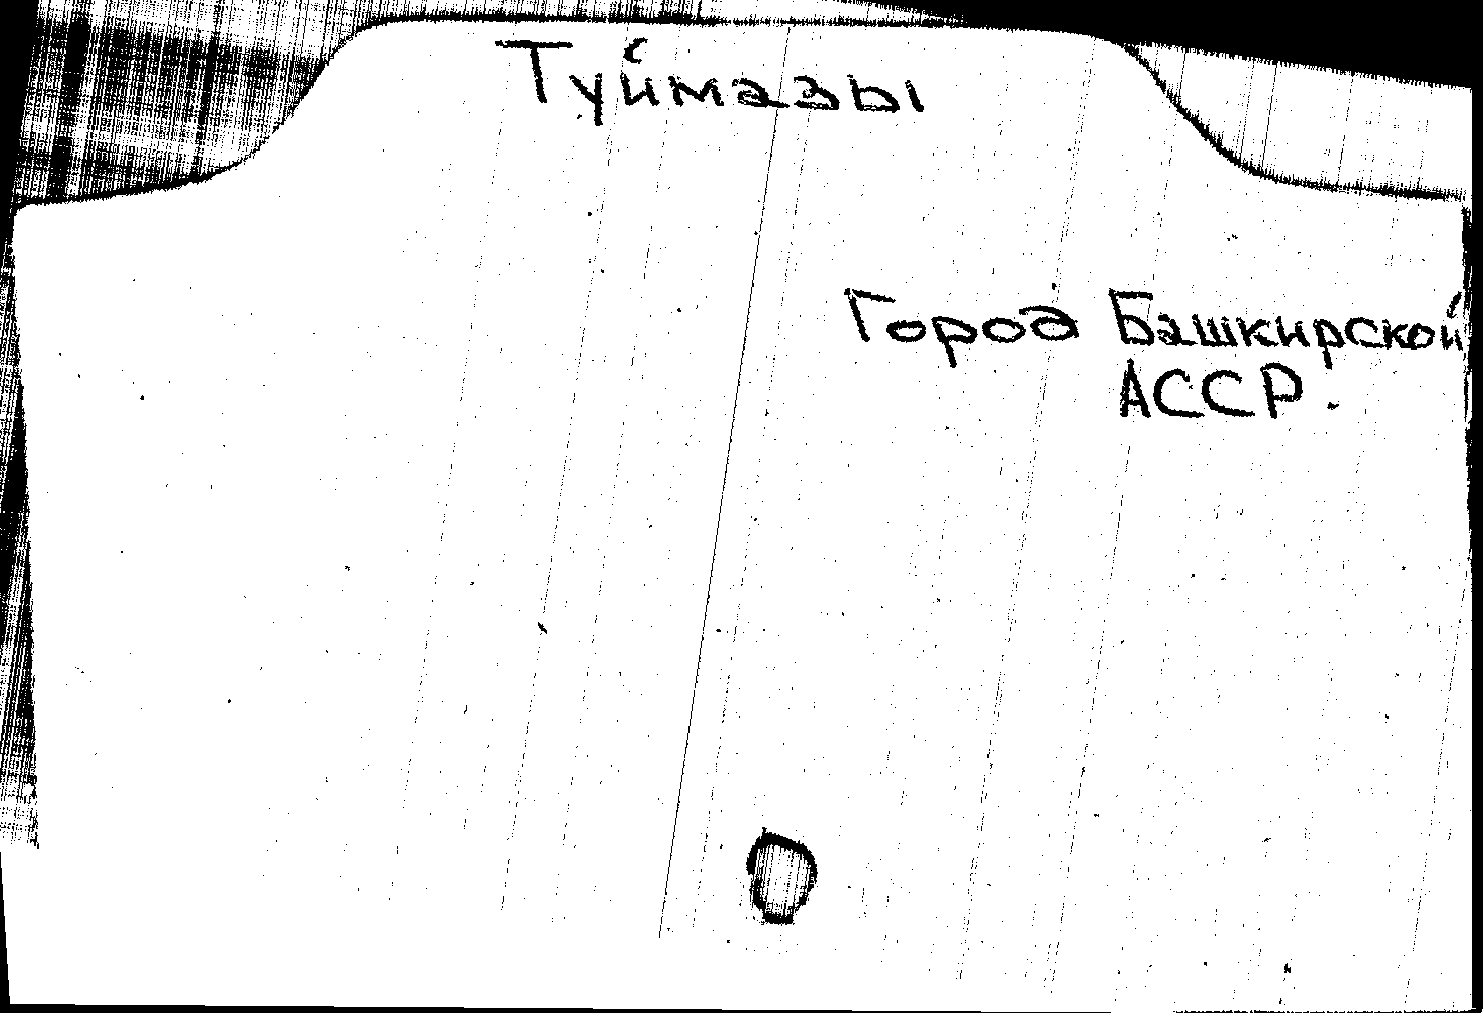 Туймазы
Город Башкирской
АССР.